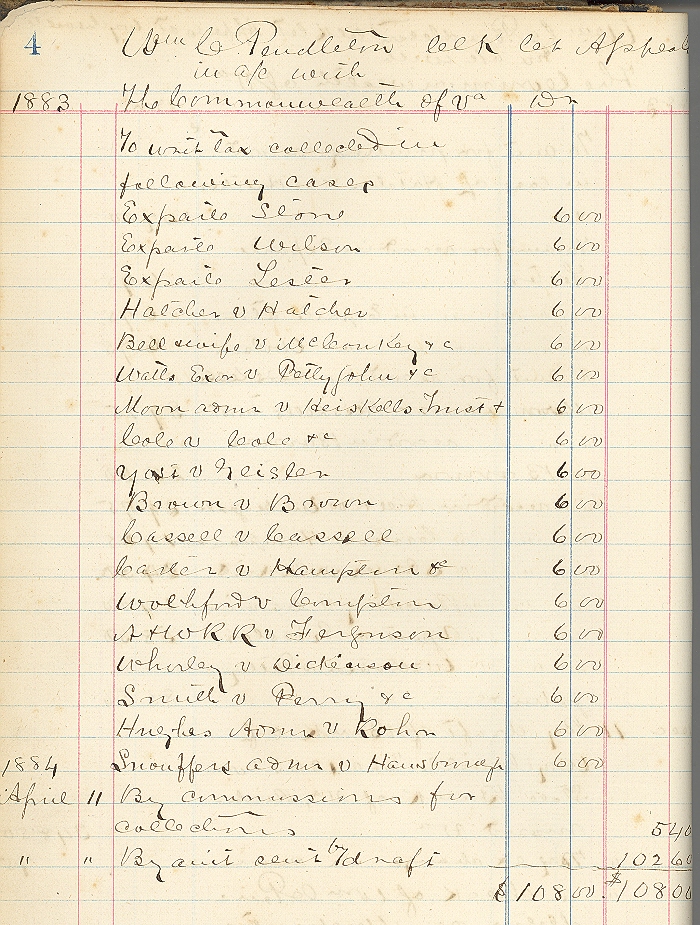 4 Wm C Pendleton Clk Ct Appeals
in a/c with
1883 The Commonwealth of Va Dr
To writ tax collected in
following cases
Exparte Stone 6 00
Exparte Wilson 6 00
Exparte Lester 6 00
Hatcher v Hatcher 6 00
Bell & wife v McConkey &c 6 00
Watts Exor v Pettyjohn &c 6 00
Moon admr v Heiskells Trust + 6 00
Cole v Cole &c 6 00
Yost v 6 00
Brown v Brown 6 00
Cassell v Cassell 6 00
Carter v Hampton &c 6 00
Wohlford v Compton 6 00
A M & O R R v Ferguson 6 00
Whorley v Dickenson 6 00
Smith v Perry &c 6 00
Hughes Admr v Kohn 6 00
1884 Snouffers admr v Hansbrough 6 00
April " By commissions for
collections 5 40
" " By amt sent by draft 102 60
$108 00. $108 00